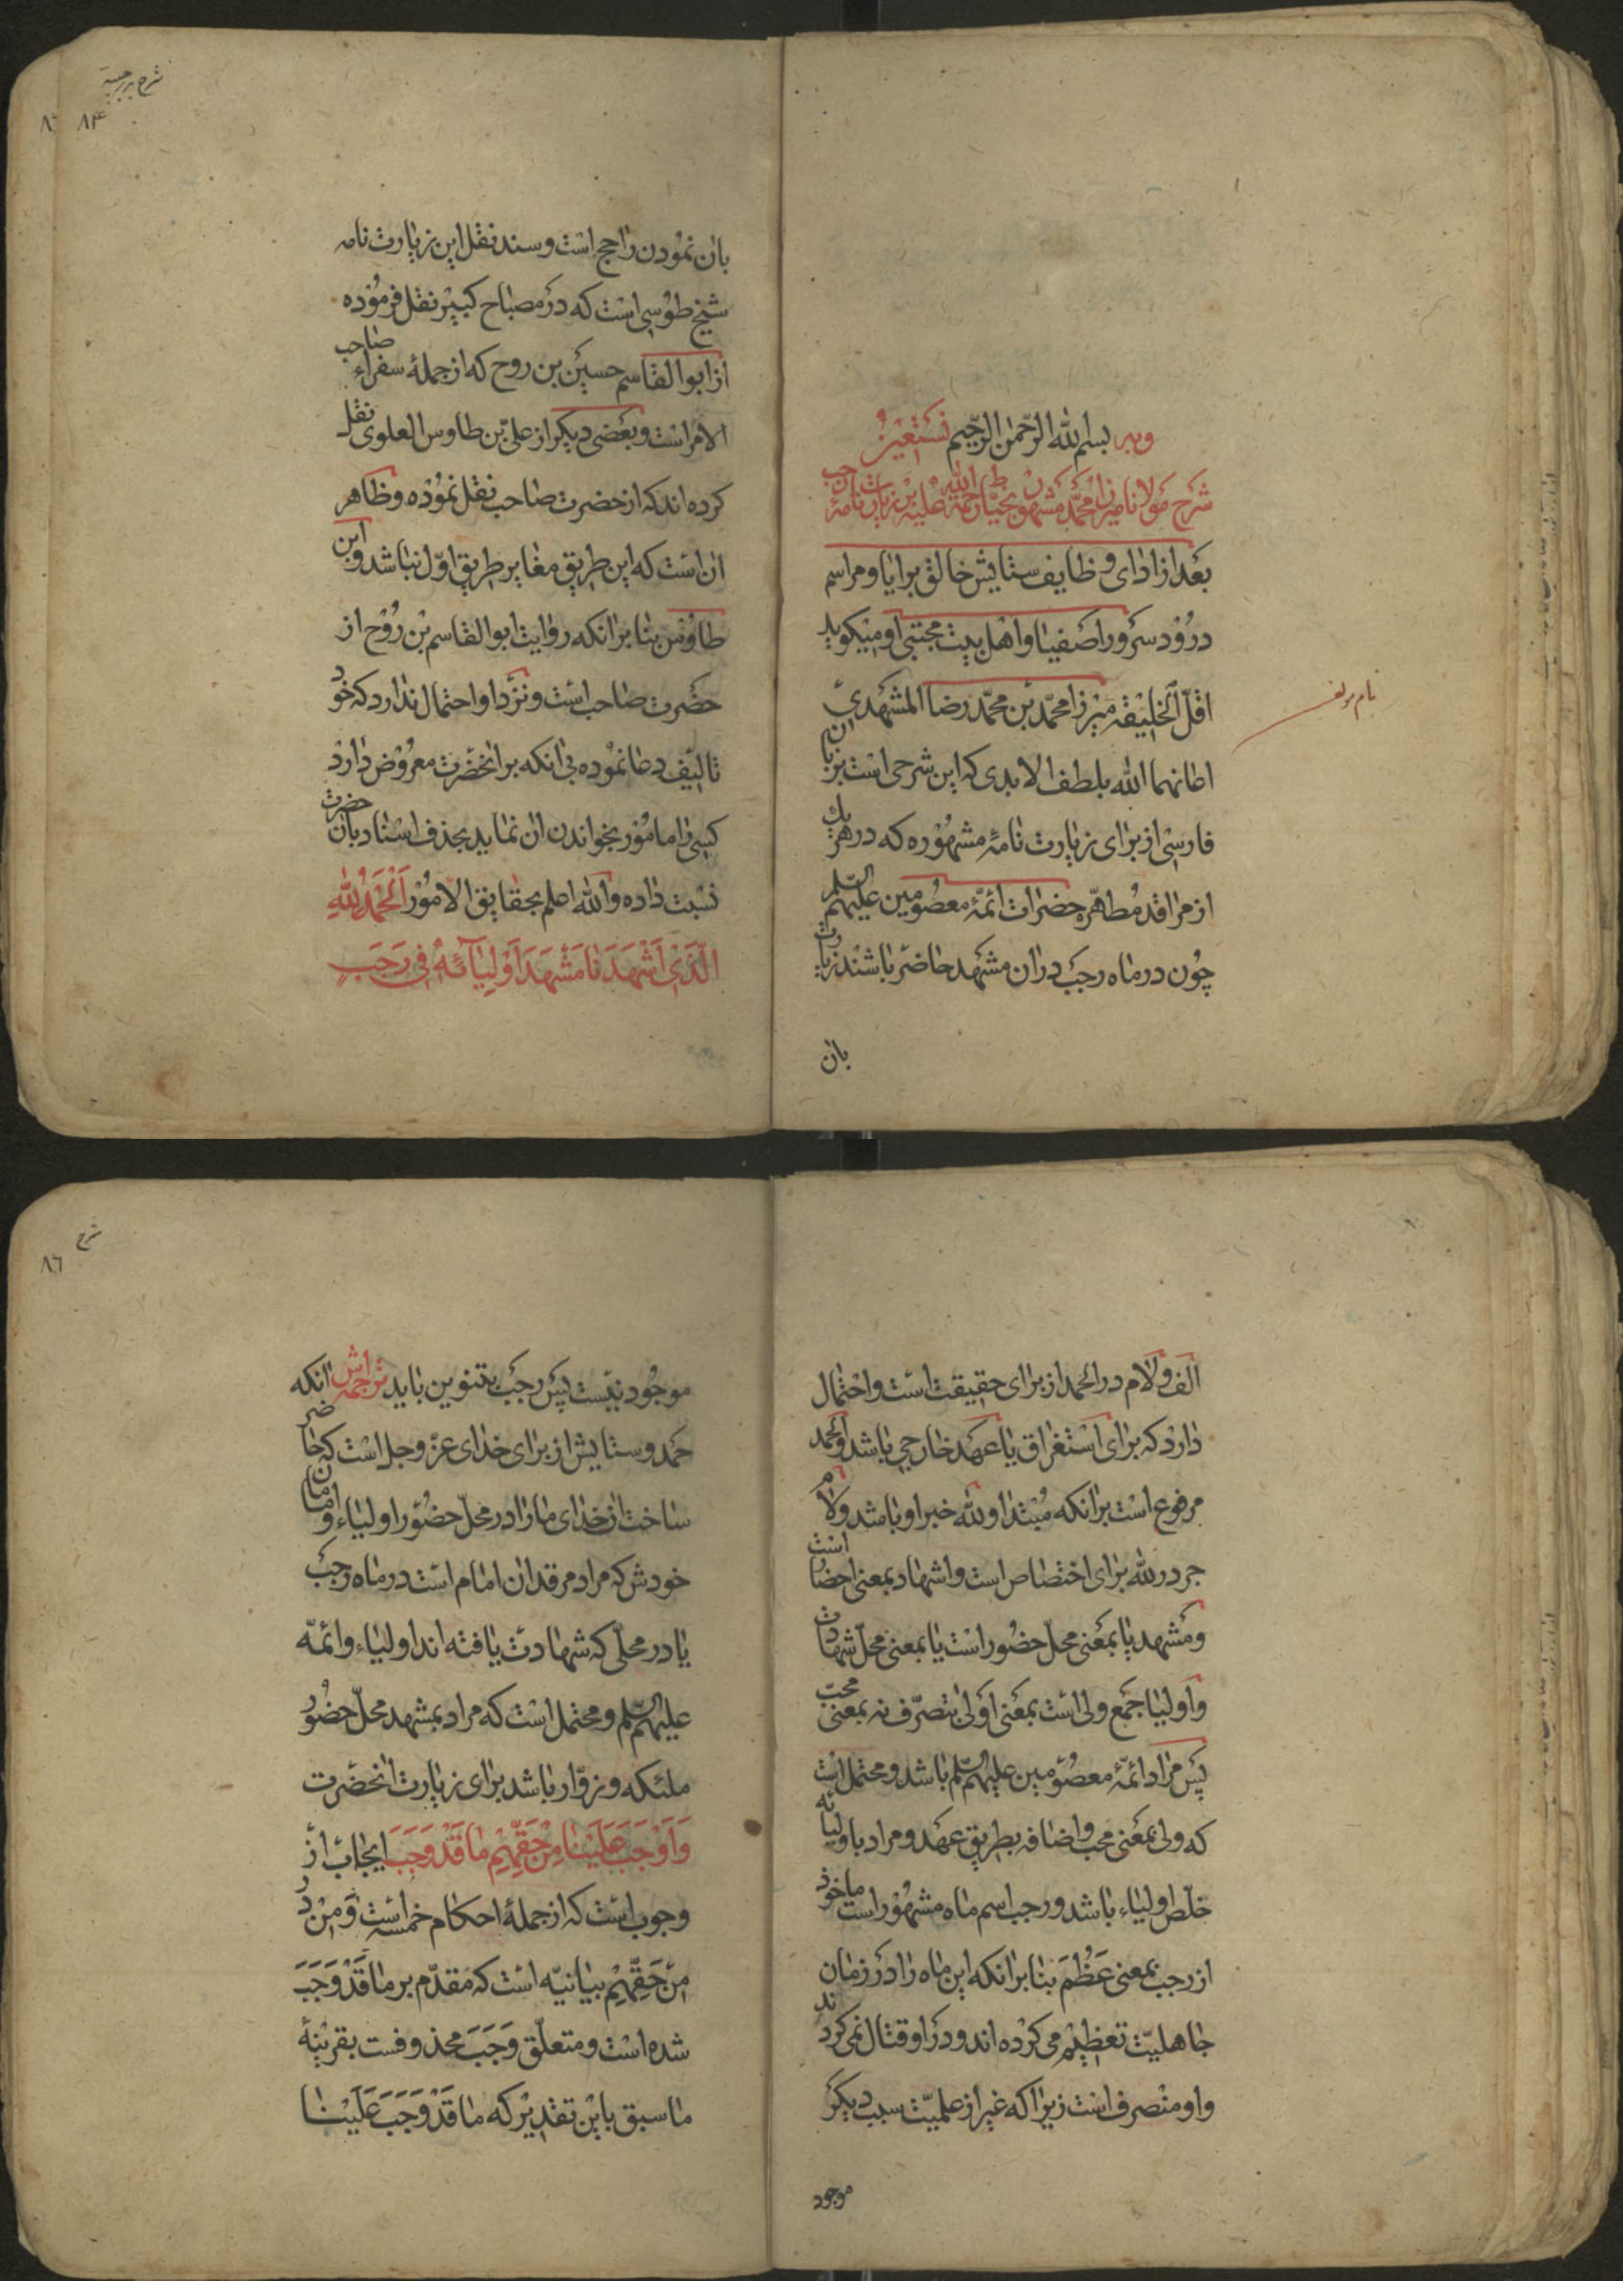 وبه بسم الله الرحمن الرحیم نستعین
شرح مولانا میرزا محمد مشهور رحمة الله علیه بزیارت نامهٔ
بعد از ادای وظایف ستایش خالق برایا و مراسم
درود سرور اصفیا و اهل بیت مجتبی او میکوید
اقل الخلیقه میرزا محمد بن محمد رضا المشهدی
اعانهما الله بلطف الابدی که این شرحی است بزبان
فارسی از برای زیارت نامهٔ مشهوره که در هر یك
از مراقد مطهره حضرات ائمهٔ معصومین علیهم السلم
چون در ماه رجب در ان مشهد حاضر باشند زیارت
بان
نام مولف
شرح رجبیه
۸۴
بان نمودن راجح است و سند نقل این زیارت نامه
شیخ طوسی است که در مصباح کبیر نقل فرموده
از ابوالقاسم حسین بن روح که از جملهٔ سفراء صاحب
الامر است و بعضی دیکر از علی بن طاوس العلوی نقل
کرده اند که از حضرت صاحب نقل نموده و ظاهر
ان است که این طریق مغایر طریق اول نباشد و ابن
طاوس بنا بر انکه روایت ابوالقاسم بن روح از
حضرت صاحب است و نزد او احتمال ندارد که خود
تالیف دعا نموده بی انکه بر انحضرت معروض دارد
کسی را مامور بخواندن ان نماید بحذف اسناد بان حضرت
نسبت داده و الله اعلم بحقایق الامور اَلْحَمْدُ لِلّٰهِ
الَّذِی اَشْهَدَنَا مَشْهَدَ اَوْلِیَآئِهٖ فِی رَجَبٍ
الف و لام در الحمد از برای حقیقت است و احتمال
دارد که برای استغراق یا عهد خارجی باشد و الحمد
مرفوع است بر انکه مبتدا و لله خبر او باشد و لام
جر در لله برای اختصاص است و اشهاد بمعنی احضار است
و مشهد یا بمعنی محل حضور است یا بمعنی محل شهادت
و اولیا جمع ولی است بمعنی اولی بتصرف نه بمعنی محب
پس مراد ائمهٔ معصومین علیهم السلم باشد و محتمل است
که ولی بمعنی محب و اضافه بطریق عهد و مراد باولیائه
خلص اولیاء باشد و رجب اسم ماه مشهور است ماخوذ
از رجب بمعنی عَظُمَ بنا بر انکه این ماه را در زمان
جاهلیت تعظیم می کرده اند و در او قتال نمی کردند
و او منصرف است زیرا که غیر از علمیت سبب دیکر
موجود
شرح
۸٦
موجود نیست پس رجب بتنوین باید ترجمه اش انکه
حمد و ستایش از برای خدای عز و جل است که حاضر
ساخت ان خدای ما را در محل حضور اولیاء و امامان
خودش که مراد مرقد ان امام است در ماه رجب
یا در محلی که شهادت یافته اند اولیاء و ائمه
علیهم السلم و محتمل است که مراد بمشهد محل حضور
ملئکه و زوار باشد برای زیارت انحضرت
وَ اَوْجَبَ عَلَیْنَا مِنْ حَقِّهِمْ مَا قَدْ وَجَبَ ایجاب از
وجوب است که از جملهٔ احکام خمسه است و مِنْ در
مِنْ حَقِّهِمْ بیانیه است که مقدم بر مَا قَدْ وَجَبَ
شده است و متعلق وَجَبَ محذوفست بقرینهٔ
ما سبق باین تقدیر که مَا قَدْ وَجَبَ عَلَیْنَا